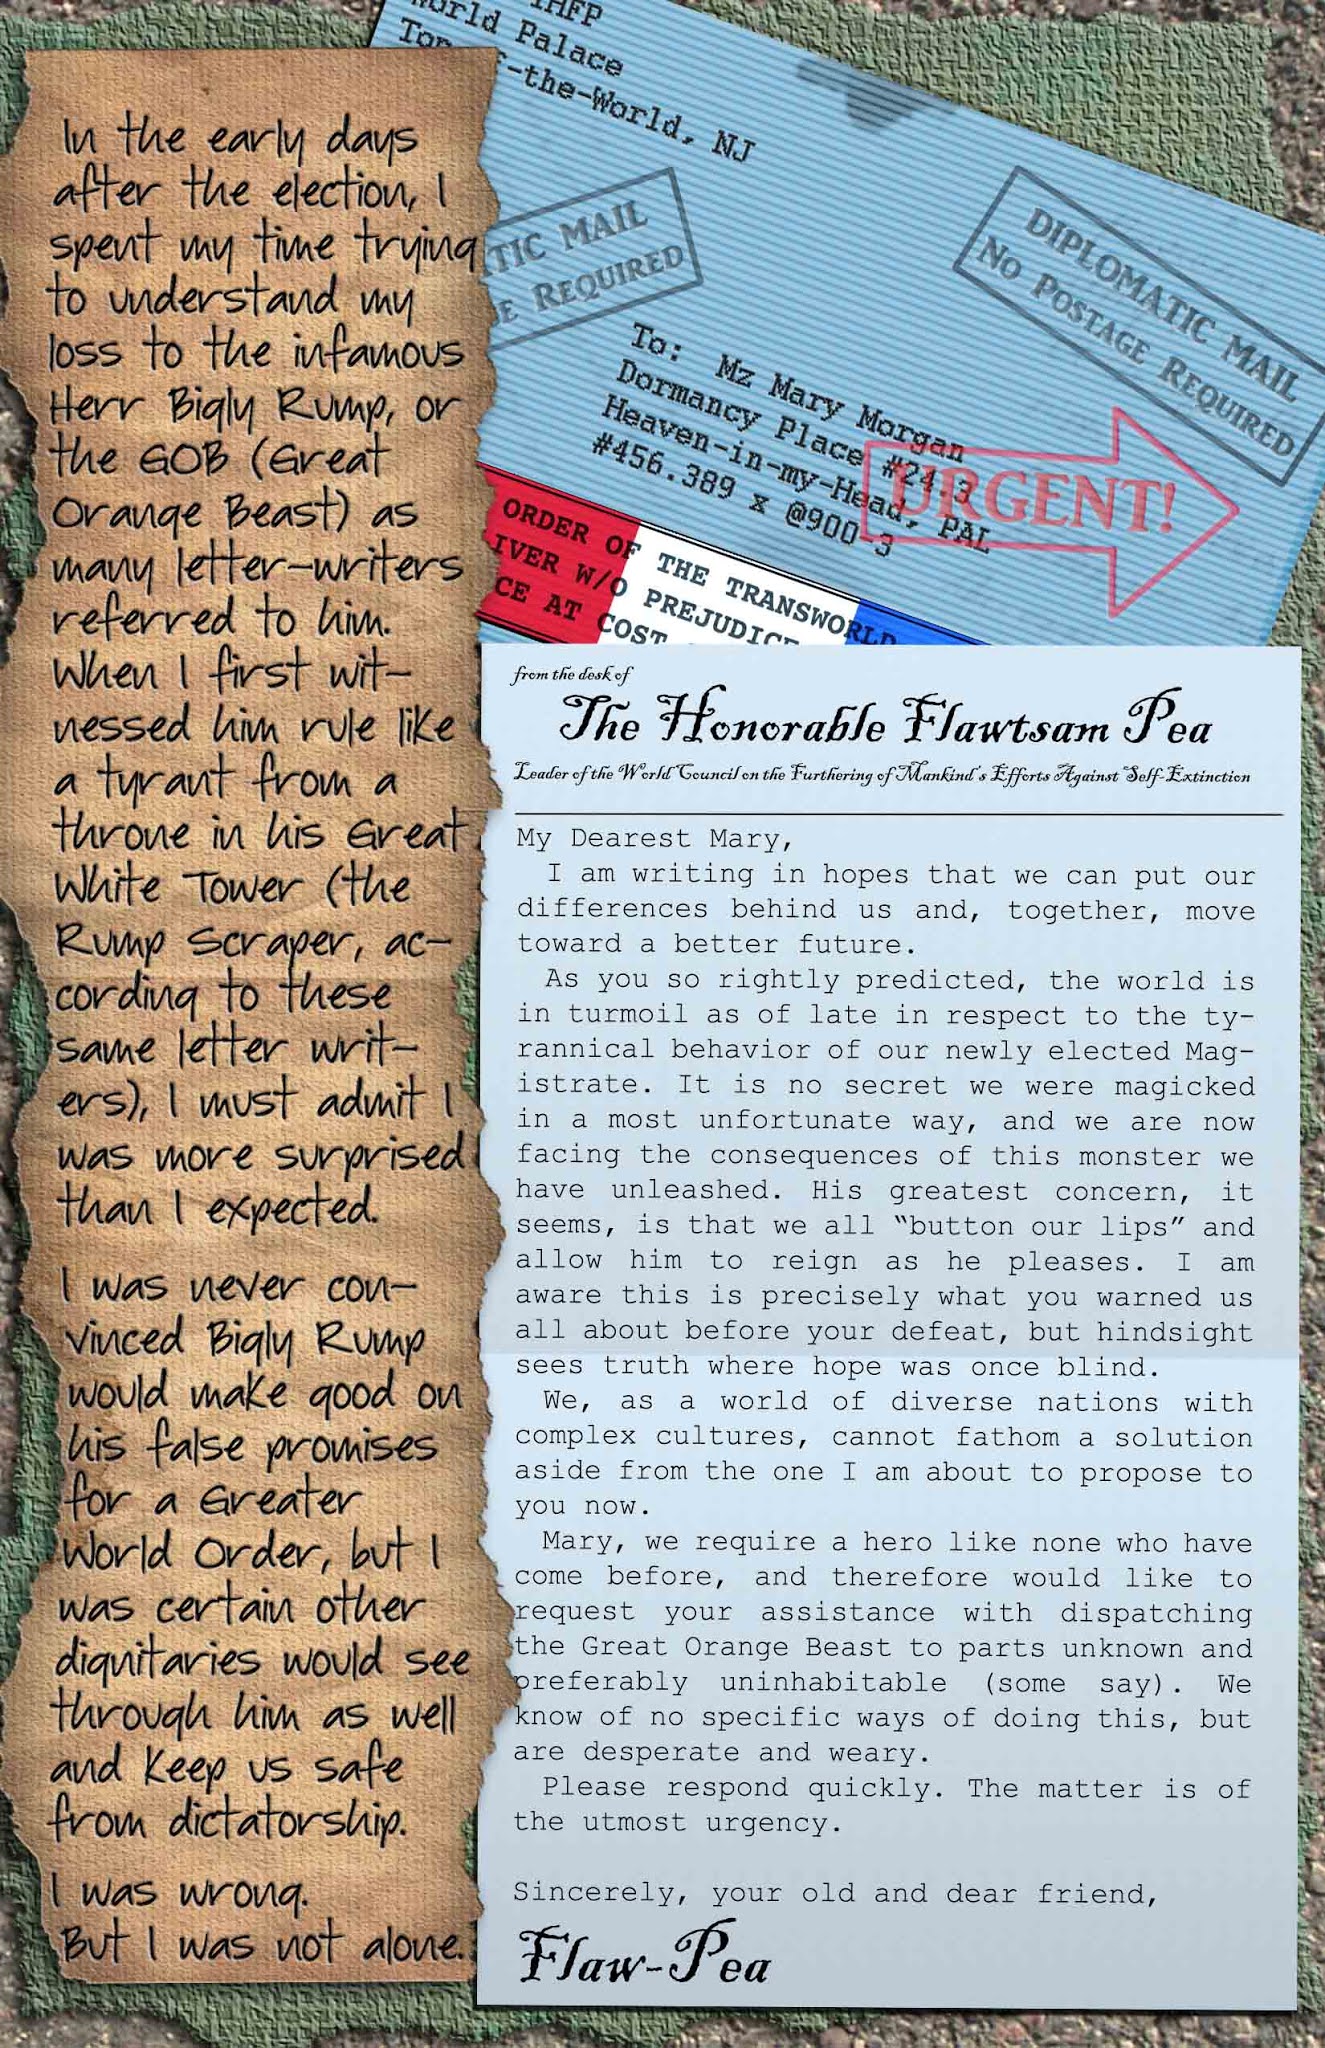 In the early days
after the election, I
spent my time trying
to understand my
loss to the infamous
Herr Bigly Rump, or
the GOB (Great
Orange Beast) as
many letter-writers
referred to him.
When I first wit-
nessed him rule like
a tyrant from a
throne in his Great
White Tower (the
Rump Scraper, ac-
cording to these
same letter writ-
ers), I must admit I
was more surprised
than I expected.
I was never con-
vinced Bigly Rump
would make good on
his false promises
for a Greater
World Order, but I
was certain other
dignitaries would see
through him as well
and keep us safe
from dictatorship.
I was wrong.
But I was not alone.
THFP
World Palace
Top-of-the-World, NJ
TIC MAIL
E REQUIRED
DIPLOMATIC MAIL
NO POSTAGE REQUIRED
To: Mz Mary Morgan
Dormancy Place #24.3
Heaven-in-my-Head, PAL
#456.389 x @900-3
URGENT!
ORDER OF THE TRANSWORLD
LIVER W/O PREJUDICE
CE AT COST
from the desk of
The Honorable Flawtsam Pea
Leader of the World Council on the Furthering of Mankind's Efforts Against Self-Extinction
My Dearest Mary,
I am writing in hopes that we can put our
differences behind us and, together, move
toward a better future.
As you so rightly predicted, the world is
in turmoil as of late in respect to the ty-
rannical behavior of our newly elected Mag-
istrate. It is no secret we were magicked
in a most unfortunate way, and we are now
facing the consequences of this monster we
have unleashed. His greatest concern, it
seems, is that we all “button our lips” and
allow him to reign as he pleases. I am
aware this is precisely what you warned us
all about before your defeat, but hindsight
sees truth where hope was once blind.
We, as a world of diverse nations with
complex cultures, cannot fathom a solution
aside from the one I am about to propose to
you now.
Mary, we require a hero like none who have
come before, and therefore would like to
request your assistance with dispatching
the Great Orange Beast to parts unknown and
preferably uninhabitable (some say). We
know of no specific ways of doing this, but
are desperate and weary.
Please respond quickly. The matter is of
the utmost urgency.
Sincerely, your old and dear friend,
Flaw-Pea